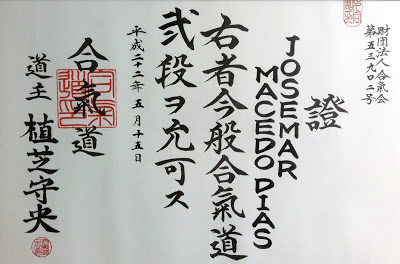 財団法人 合氣会
第五三九〇二号
證
JOSEMAR
MACEDO DIAS
右者今般合氣道
弐段ヲ允可ス
平成二十二年五月十五日
合氣道
道主 植芝守央